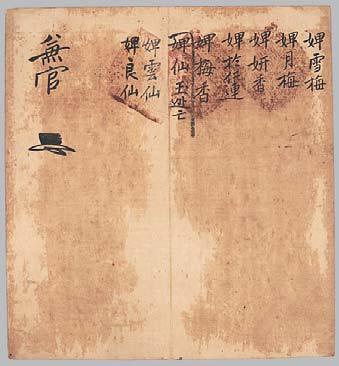 婢雪梅
婢月梅
婢妍香
婢梅香
婢仙玉逃亡
婢雲仙
婢良仙
兼官